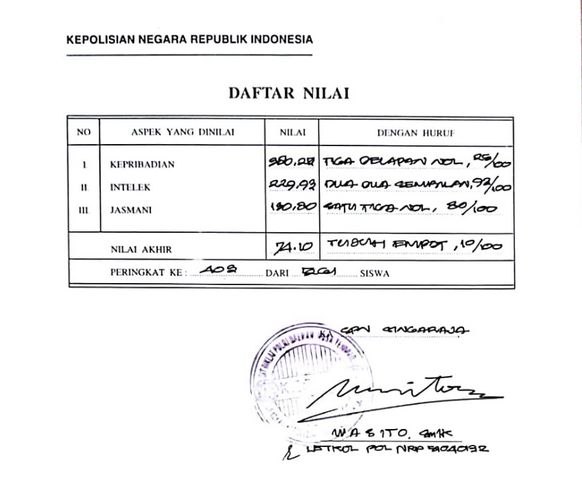 KEPOLISIAN NEGARA REPUBLIK INDONESIA
DAFTAR NILAI
NO ASPEK YANG DINILAI NILAI DENGAN HURUF
I KEPRIBADIAN 380,28 TIGA DELAPAN NOL, /00
II INTELEK 229,92 DUA DUA SEMBILAN, 92/00
III JASMANI 130,80 SATU TIGA NOL, 80/00
NILAI AKHIR 74.10 TUJUH EMPAT, 10/00
PERINGKAT KE : 402 DARI SISWA
SPN SINGARAJA
WASITO. SMIK
LETKOL POL NRP